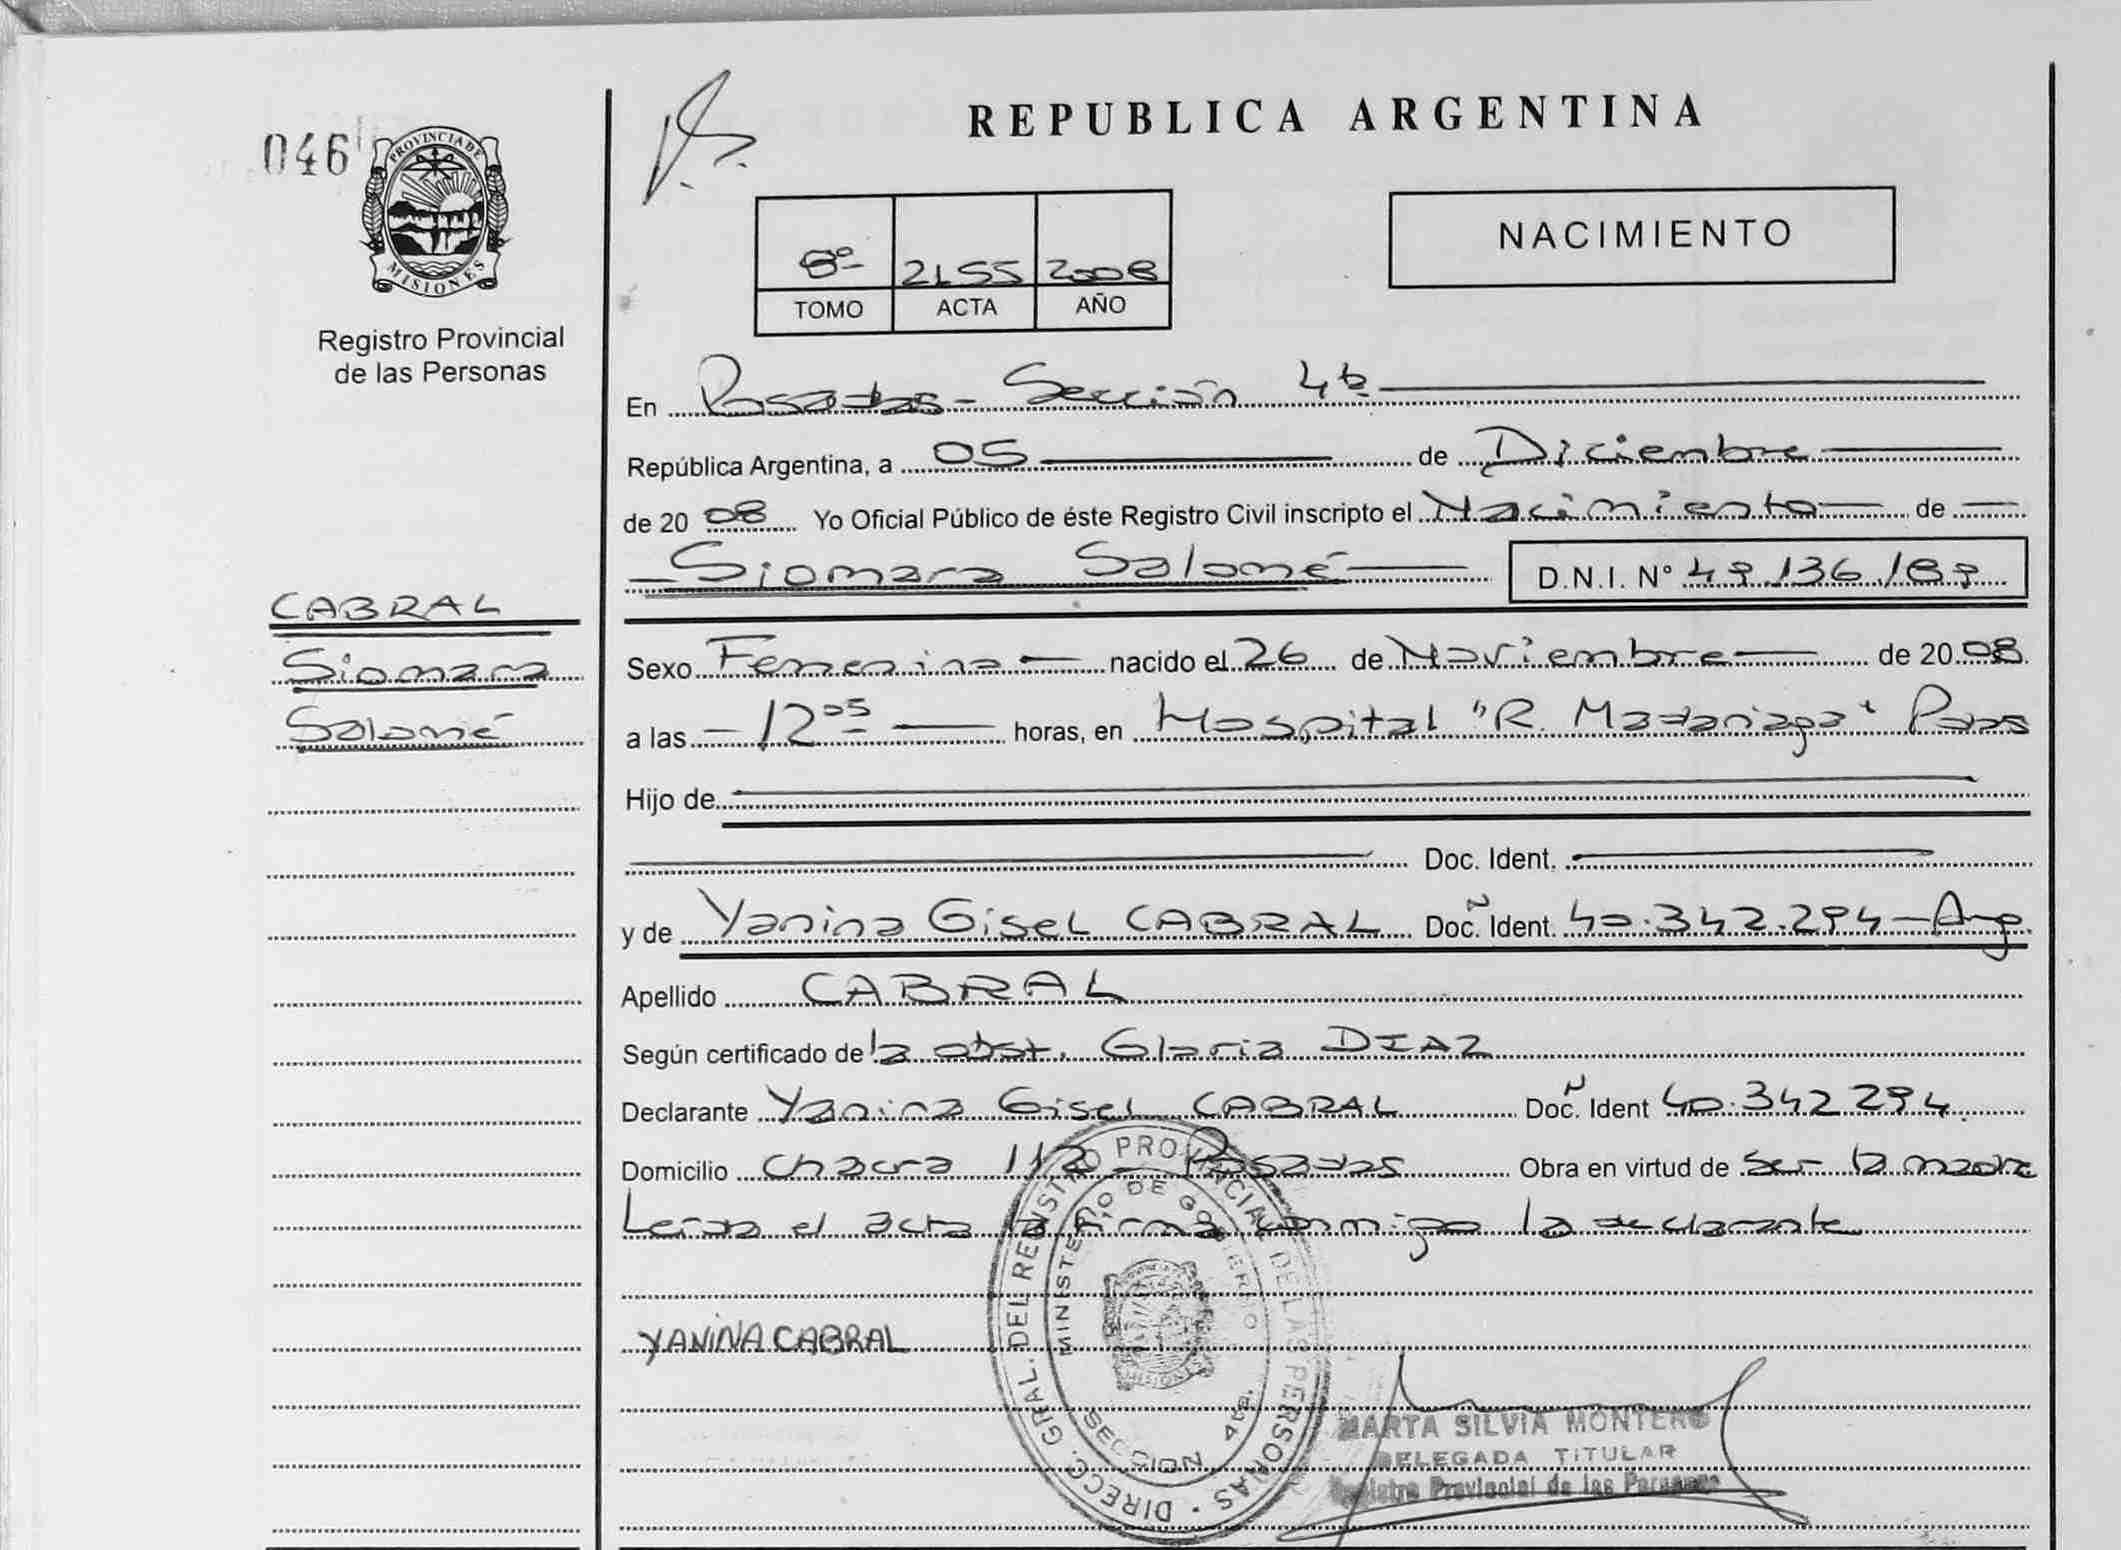 REPUBLICA ARGENTINA
046
PROVINCIA DE
MISIONES
Registro Provincial
de las Personas
8º 2155 2008
TOMO ACTA AÑO
NACIMIENTO
En Posadas - Sección 4ta
República Argentina, a 05 de Diciembre
de 2008 Yo Oficial Público de éste Registro Civil inscripto el Nacimiento de
Siomara Salomé D.N.I. N° 49.136.189
CABRAL
Siomara
Salomé
Sexo Femenino nacido el 26 de Noviembre de 2008
a las 12 05 horas, en Hospital "R. Madariaga" Pdas
Hijo de
Doc. Ident.
y de Yanina Gisel CABRAL Doc. Ident. 40.342.294 - Arg.
Apellido CABRAL
Según certificado de la obst. Gloria DIAZ
Declarante Yanina Gisel CABRAL Doc. Ident 40.342.294
Domicilio Chacra 112 - Posadas Obra en virtud de ser la madre
Leída el acta la firma conmigo la declarante
YANINA CABRAL
DIRECC. GRAL. DEL REGISTRO PROVINCIAL DE LAS PERSONAS
MINISTERIO DE GOBIERNO
SECCION 4ta.
MARTA SILVIA MONTERO
DELEGADA TITULAR
Registro Provincial de las Personas